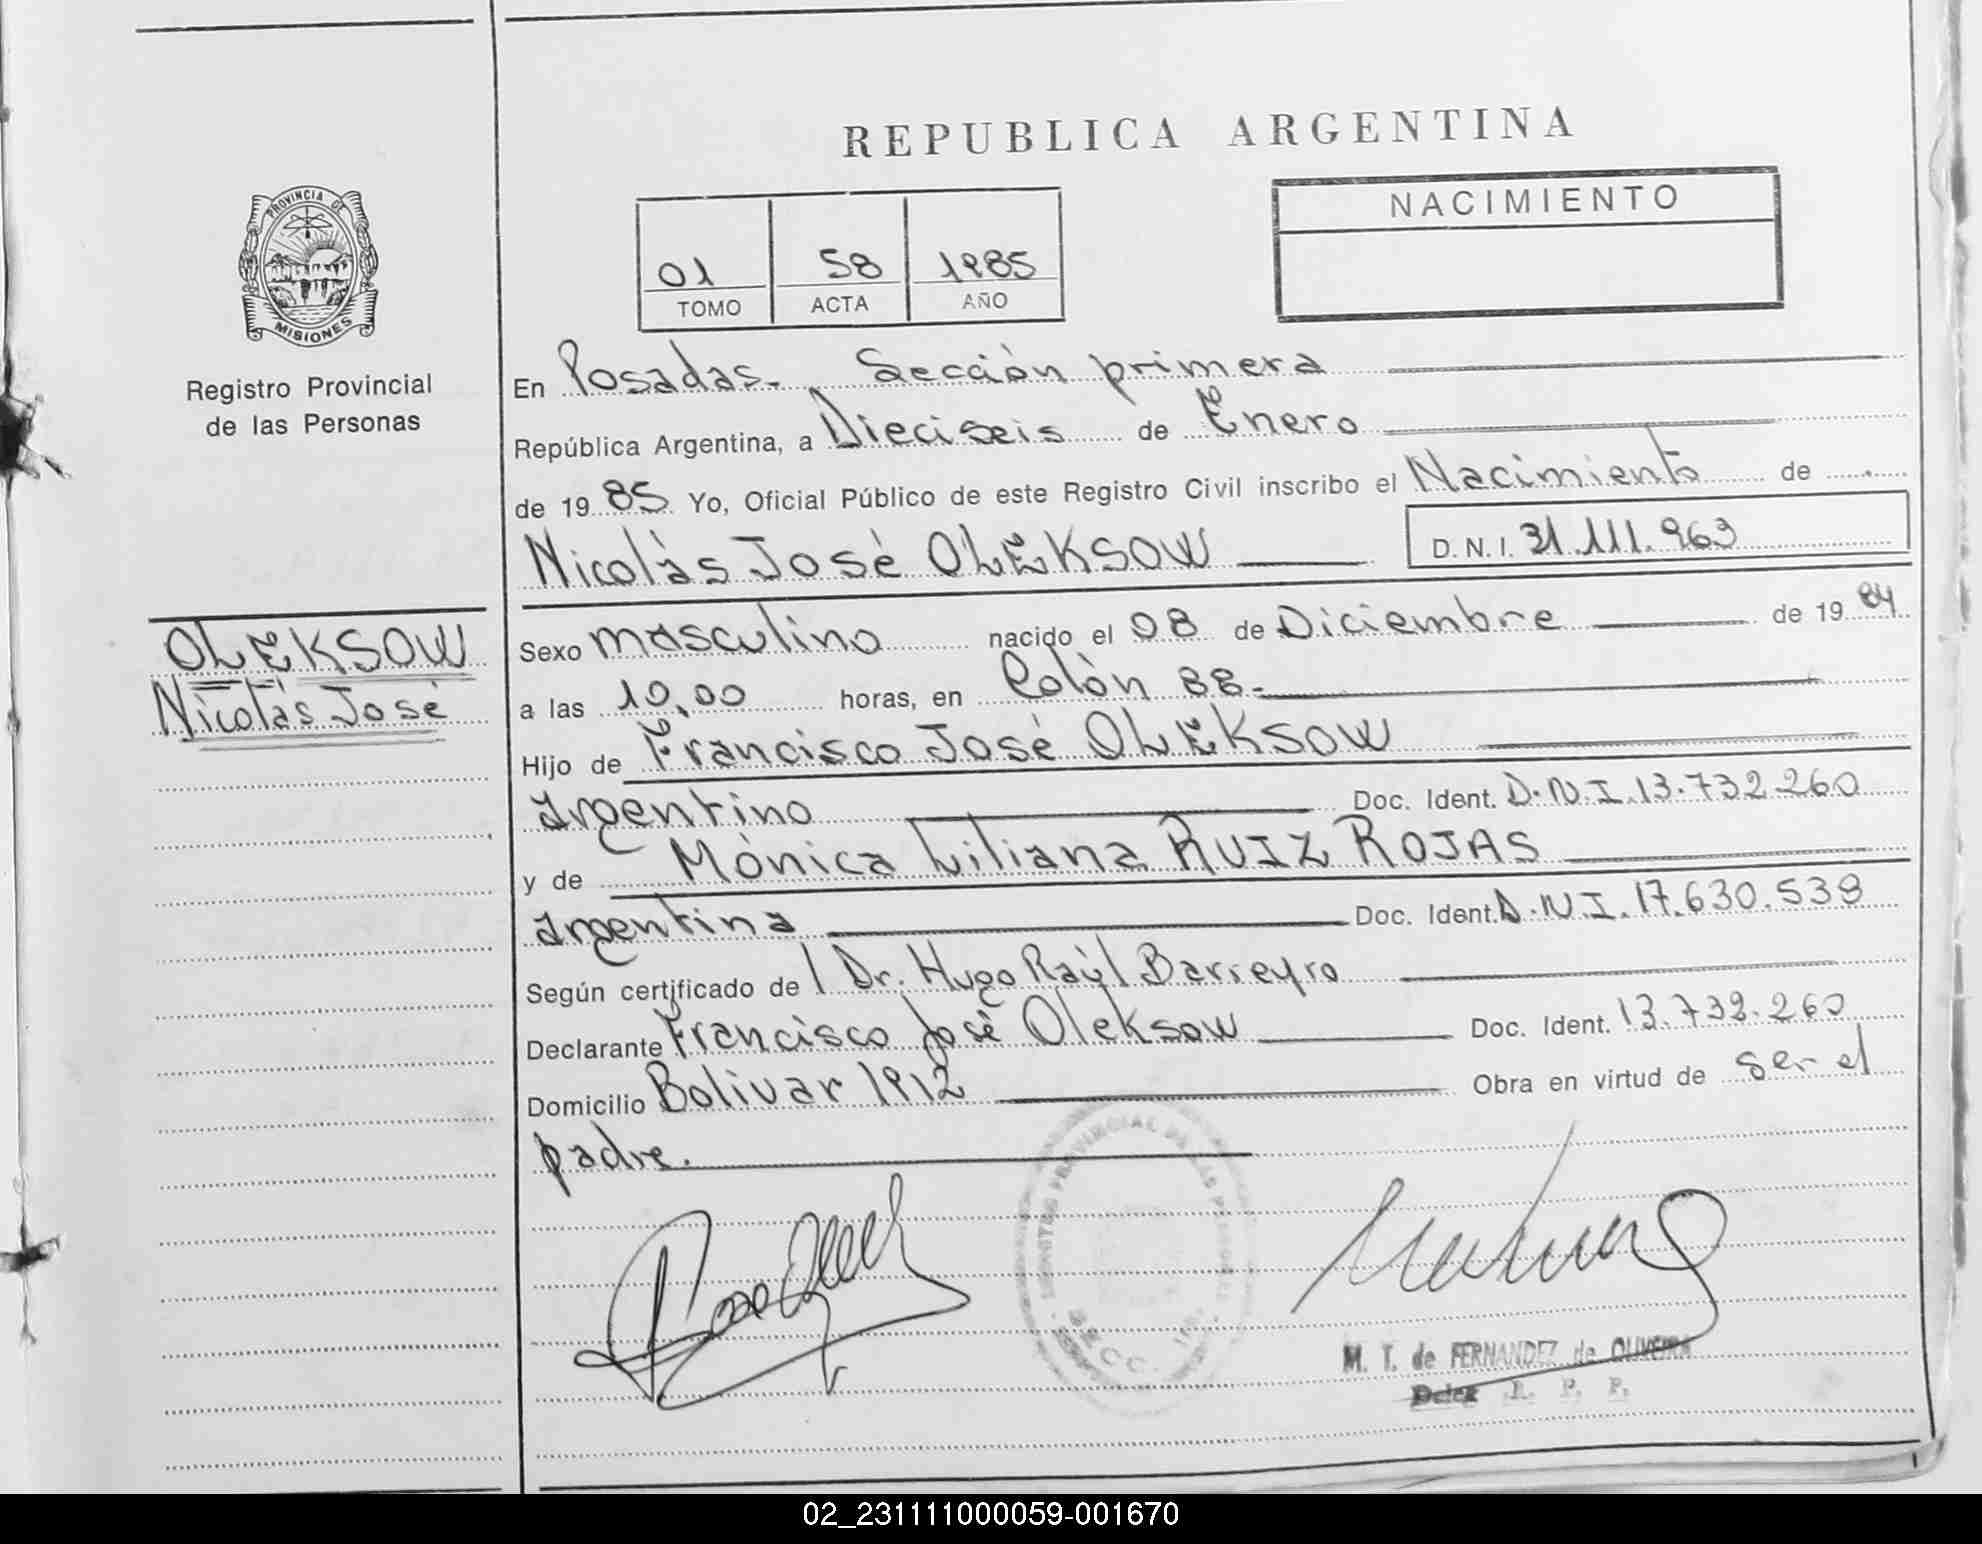 REPUBLICA ARGENTINA
PROVINCIA DE
MISIONES
Registro Provincial
de las Personas
01 58 1985
TOMO ACTA AÑO
NACIMIENTO
En Posadas. Sección primera
República Argentina, a Dieciseis de Enero
de 1985 Yo, Oficial Público de este Registro Civil inscribo el Nacimiento de
Nicolás José OLEKSOW D.N.I. 31.111.963
OLEKSOW
Nicolás José
Sexo masculino nacido el 08 de Diciembre de 1984
a las 10,00 horas, en Colón 88.
Hijo de Francisco José OLEKSOW
argentino Doc. Ident. D.N.I. 13.732.260
y de Mónica Liliana RUIZ ROJAS
argentina Doc. Ident. D.N.I. 17.630.539
Según certificado de l Dr. Hugo Raúl Barreyro
Declarante Francisco José Oleksow Doc. Ident. 13.732.260
Domicilio Bolivar 1912 Obra en virtud de ser el
padre.
M. T. de FERNANDEZ de OLIVEIRA
R. P. P.
02_231111000059-001670